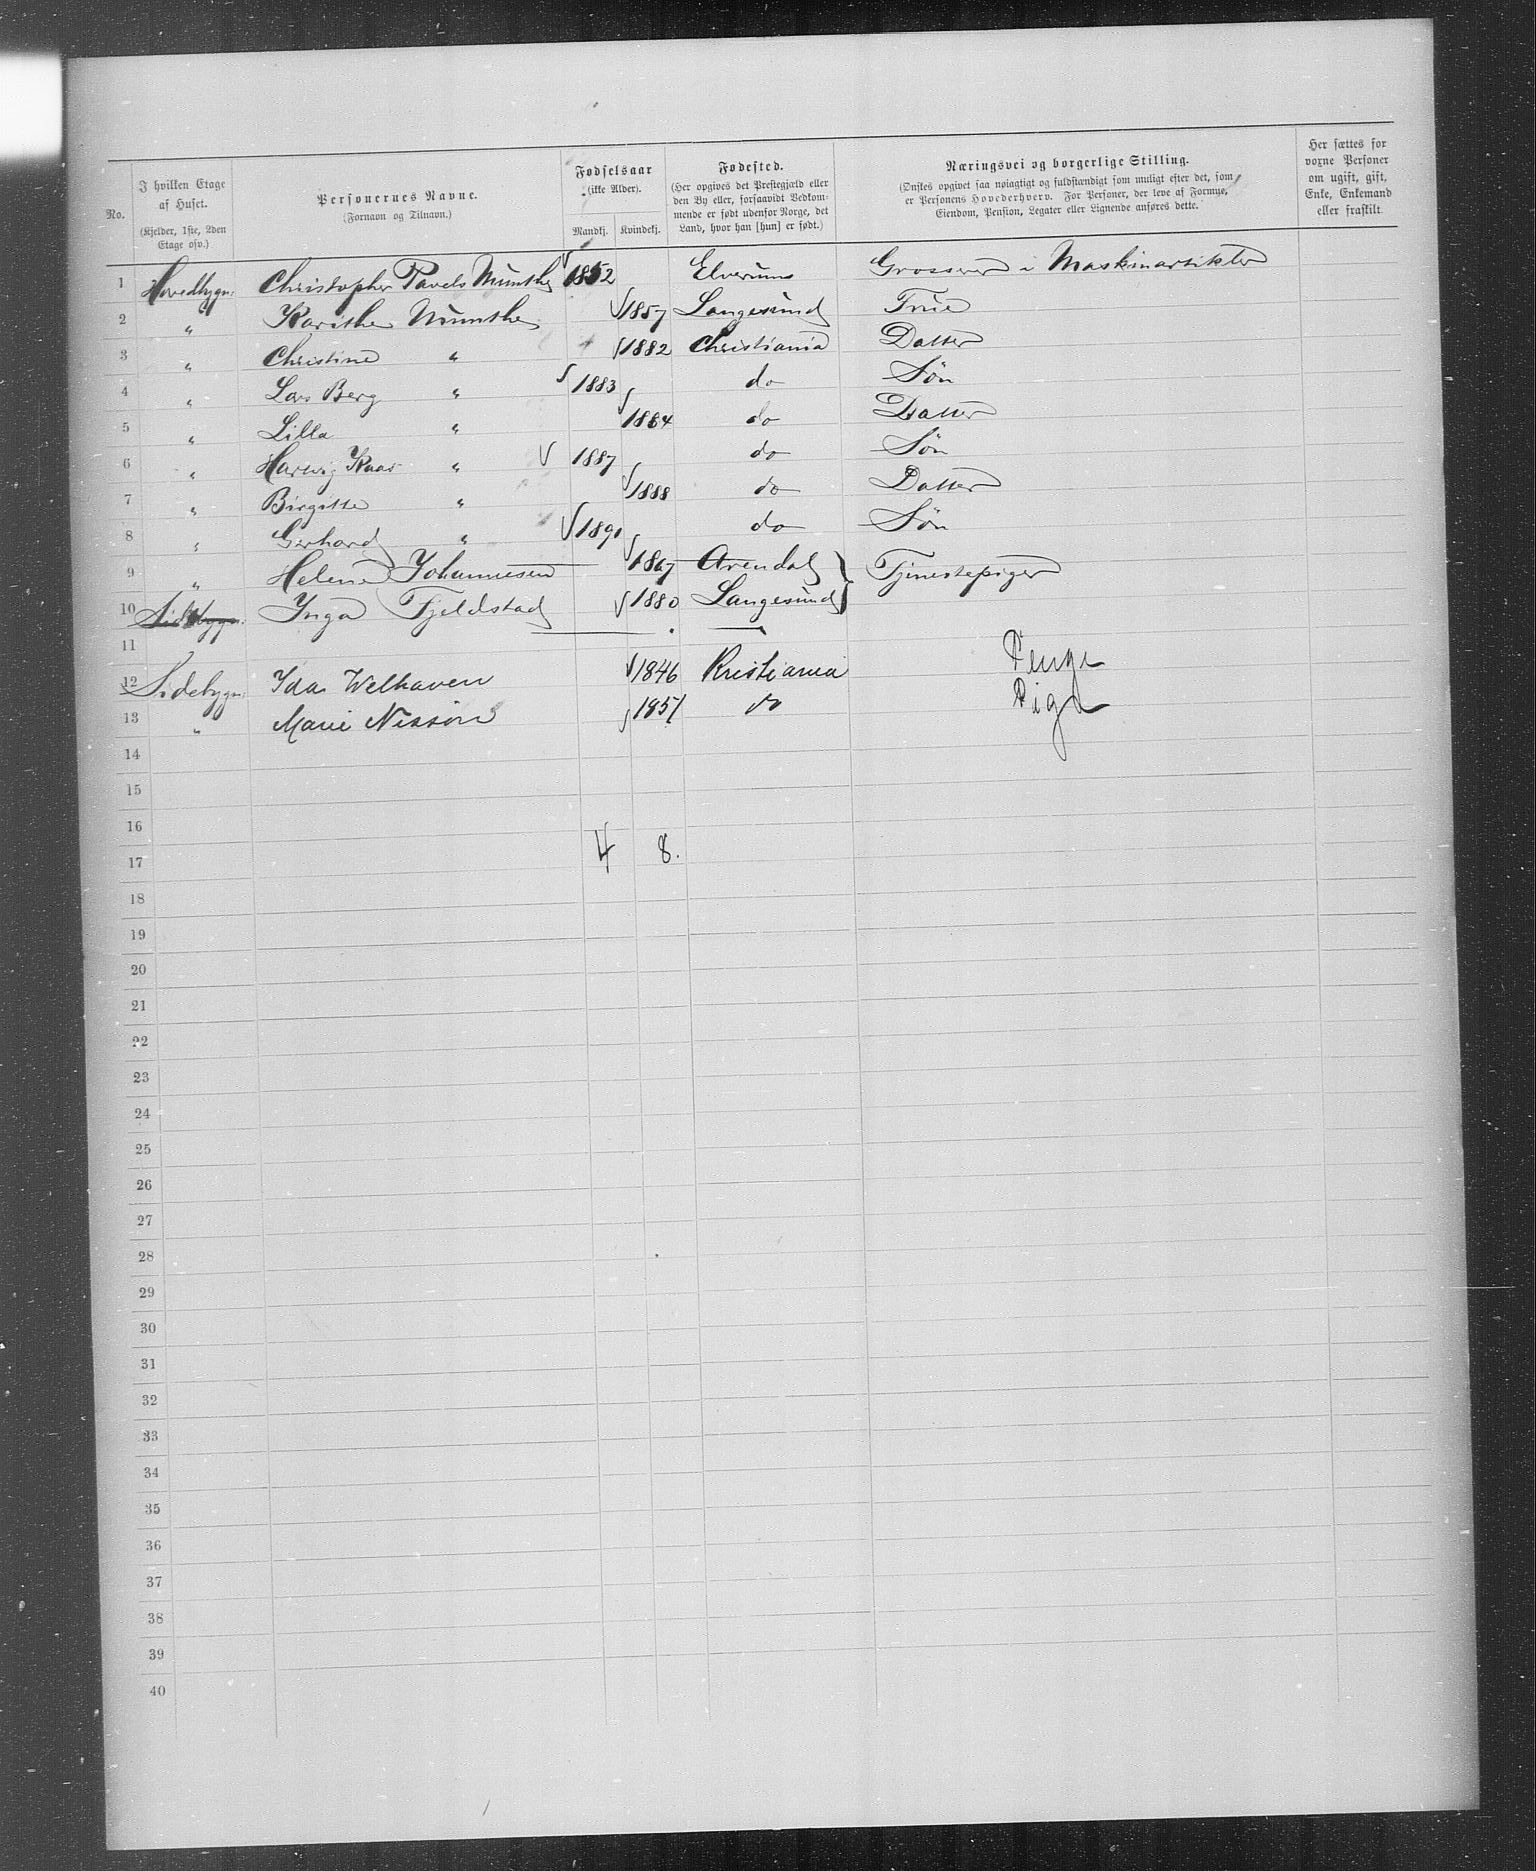 No.
I hvilken Etage af Huset. (Kjelder, 1ste, 2den Etage osv.)
Personernes Navne. (Fornavn og Tilnavn.)
Fødselsaar (ikke Alder). Mandkj. Kvindekj.
Fødested. (Her opgives det Prestegjæld eller den By eller, forsaavidt Vedkommende er født udenfor Norge, det Land, hvor han [hun] er født.)
Næringsvei og borgerlige Stilling. (Ønskes opgivet saa nøiagtigt og fuldstændigt som muligt efter det, som er Personens Hovederhverv. For Personer, der leve af Formue, Eiendom, Pension, Legater eller Lignende anføres dette.)
Her sættes for voxne Personer om ugift, gift, Enke, Enkemand eller fraskilt.
1 Hovedbygn: Christopher Pavels Munthe 1852 Elverum Grosserer i Maskinartikler
2 " Karithe Munthe 1857 Langesund Frue
3 " Christine " 1882 Christiania Datter
4 " Lars Berg " 1883 do Søn
5 " Lilla " 1884 do Datter
6 " Harwig Kaas " 1887 do Søn
7 " Birgitte " 1888 do Datter
8 " Gerhard " 1890 do Søn
9 " Helene Johannesen 1867 Arendal Tjenestepiger
10 Sidebygn: Inga Fjeldstad 1880 Langesund
11
12 Sidebygn: Ida Welhaven 1846 Kristiania Penge
13 " Marie Nissen 1851 do Pige
14
15
16
17 4 8.
18
19
20
21
22
23
24
25
26
27
28
29
30
31
32
33
34
35
36
37
38
39
40